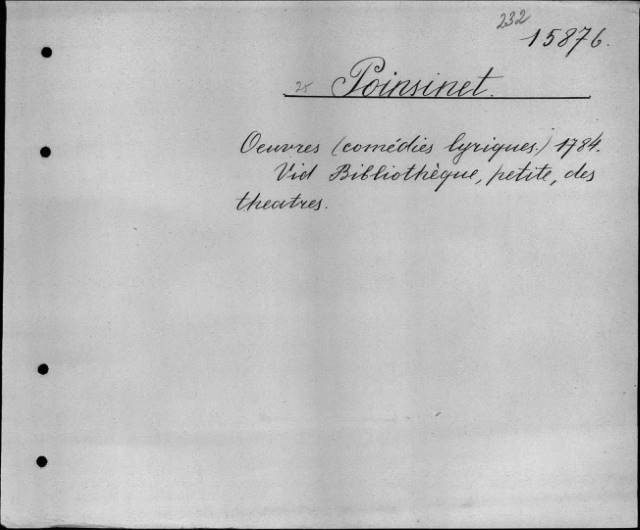 232
15876.
25 Poinsinet.
Oeuvres (comédies lyriques.) 1784.
Vid Bibliothèque, petite, des
theatres.